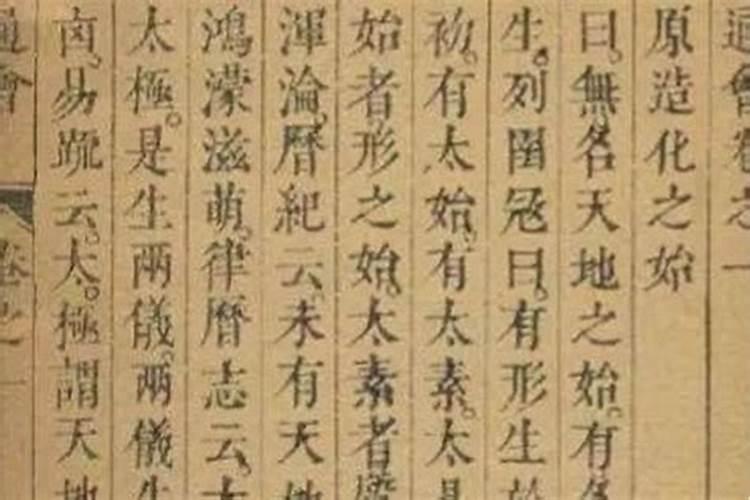 通會卷之一
原造化之始
曰。無名天地之始。有名
生。列圄冦曰。有形生於
初。有太始。有太素。太易
始者形之始。太素者
渾淪。曆紀云。未有天地
鴻濛滋萌。律曆志云。太
太極。是生兩儀。兩儀生
卤。易䟽云。太。極謂天地
通會 卷之一